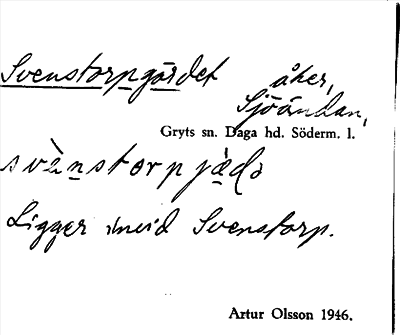 Svenstorpgärdet åker,
Sjöändan,
Gryts sn. Daga hd. Söderm. l.
svènstorpjä̀ḍə
Ligger invid Svenstorp.
Artur Olsson 1946.